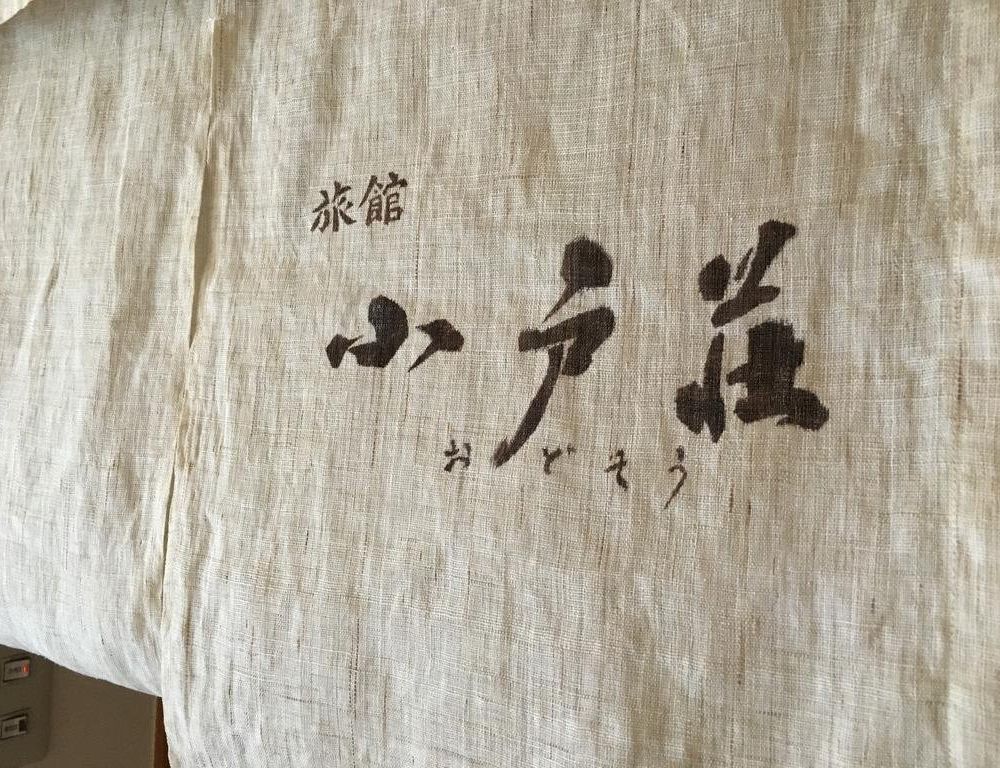 旅館
小戸荘
おどそう